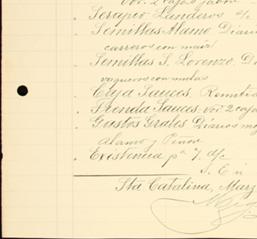 Serapio Landeros
Semillas Alamo Diario
carreros con maiz
Semillas S. Lorenzo. D
vaqueros con mulas
Caja Sauces. Remitid
Tienda Sauces.
Gastos Grales Diarios
Alamo y Peñon
Existencia pª 7. d/c
S. E ú
Sta Catalina, Marz